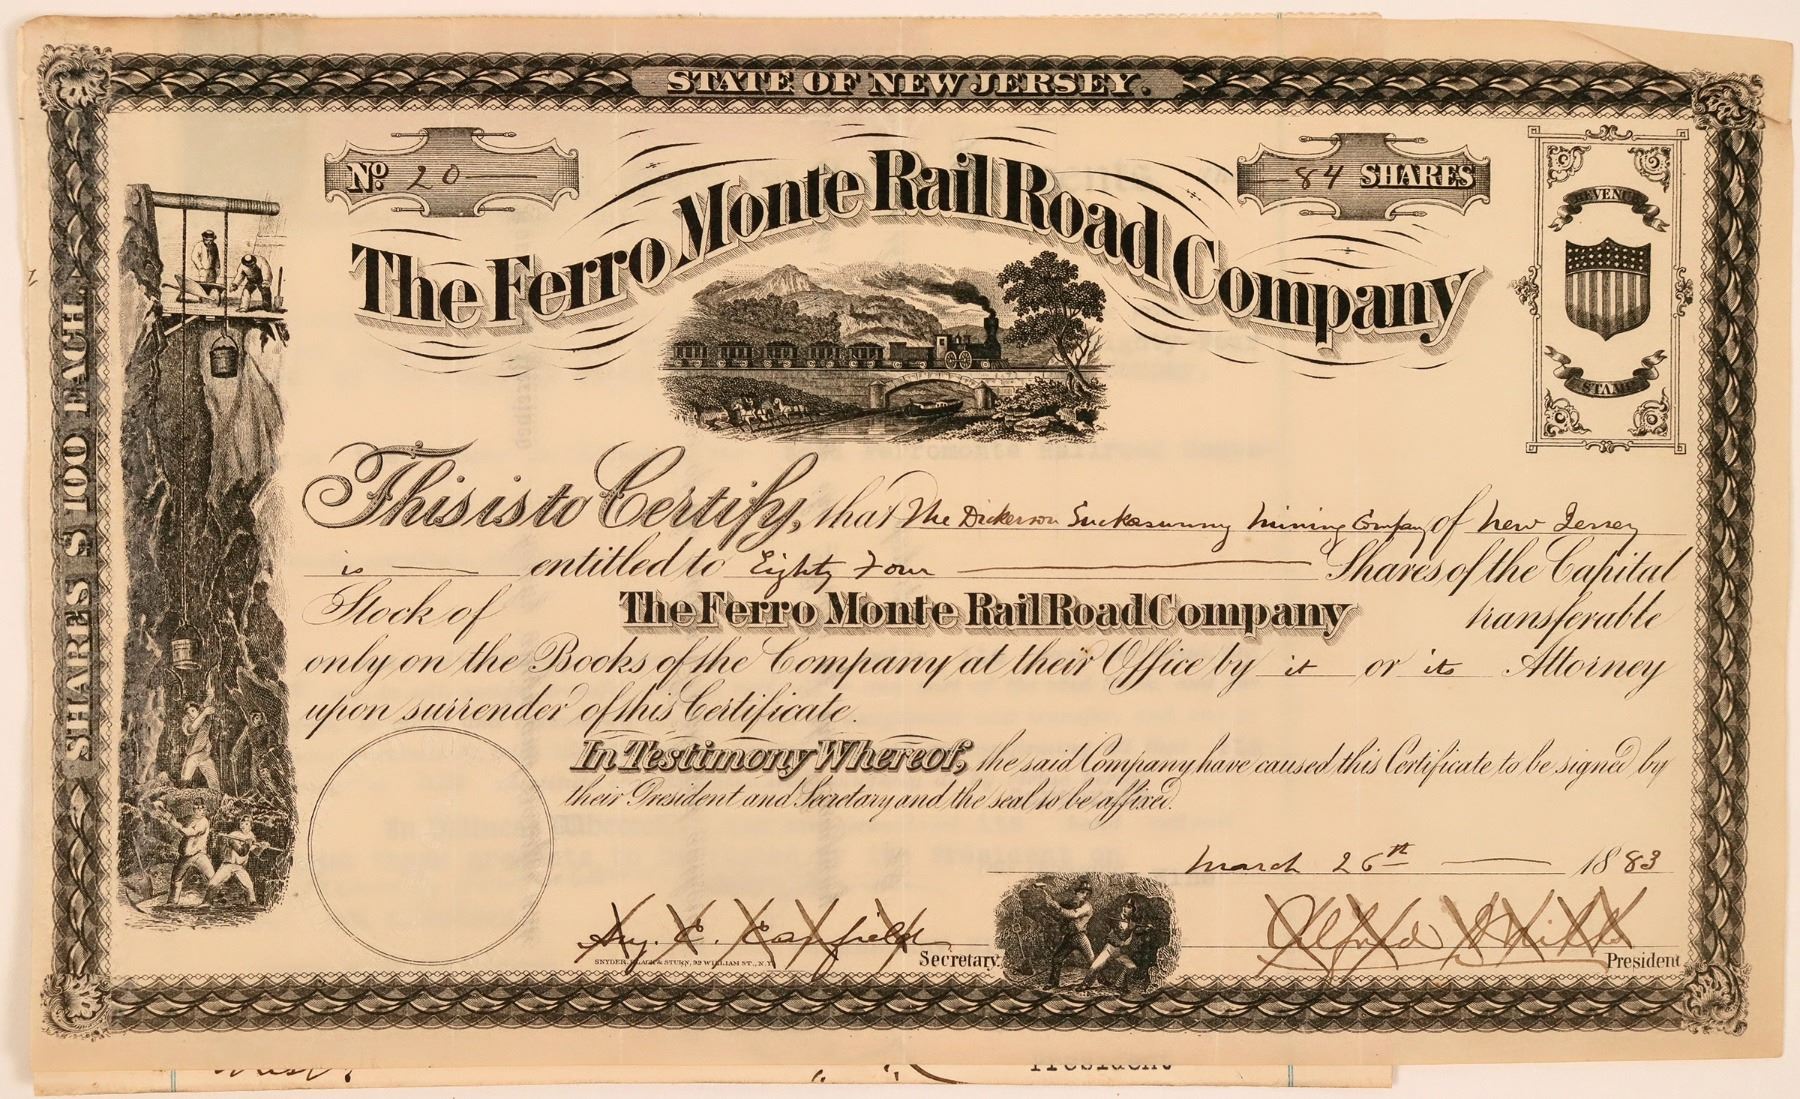 STATE OF NEW JERSEY.
No. 20
84 SHARES
The Ferro Monte Rail Road Company
REVENUE
STAMP
SHARES $100 EACH.
This is to Certify, that The Dickerson Suckasunny Mining Company of New Jersey
is entitled to Eighty Four Shares of the Capital
Stock of The Ferro Monte Rail Road Company transferable
only on the Books of the Company at their Office by it or its Attorney
upon surrender of this Certificate.
In Testimony Whereof, the said Company have caused this Certificate to be signed by
their President and Secretary and the seal to be affixed.
March 26th 1883
Canfield Secretary.
Alfred Mills President
SNYDER, BLACK & STURN, 92 WILLIAM ST., N.Y.
President